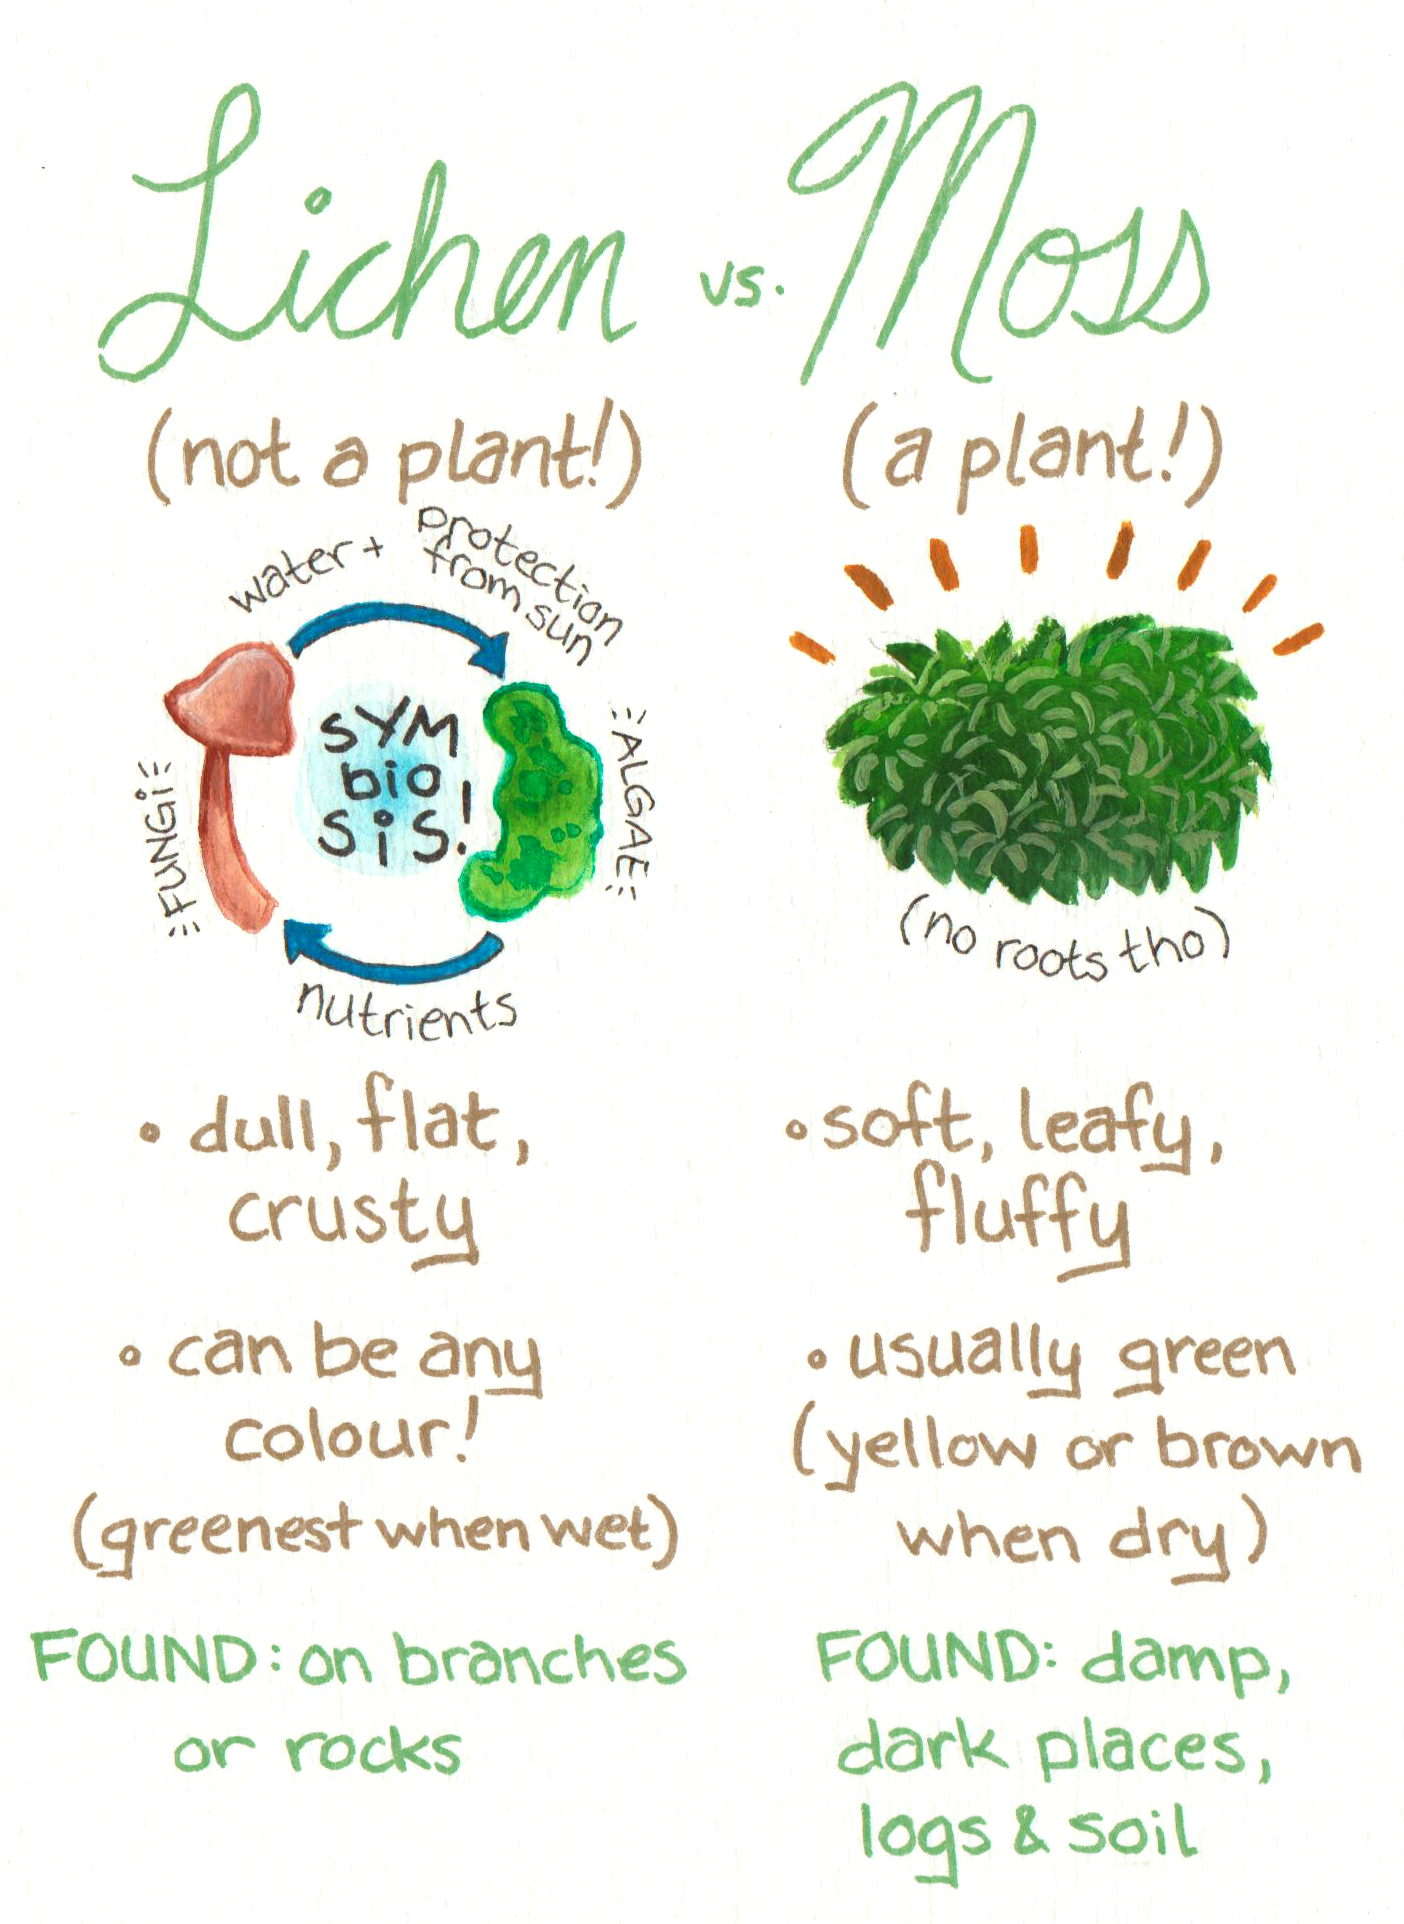 Lichen vs. Moss
(not a plant!)
water + protection
from sun
FUNGi
SYM
biO
SiS!
ALGAE
nutrients
• dull, flat,
crusty
• can be any
colour!
(greenest when wet)
FOUND: on branches
or rocks
(a plant!)
(no roots tho)
• soft, leafy,
fluffy
• usually green
(yellow or brown
when dry)
FOUND: damp,
dark places,
logs & soil